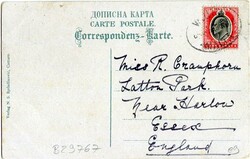 ДОПИСНА КАРТА
CARTE POSTALE.
Correspondenz-Karte.
Miss R. Cramphorn
Latton Park.
Near Harlow
Essex
England
B23767